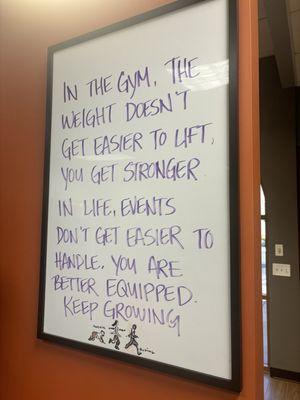 IN THE GYM, THE
WEIGHT DOESN'T
GET EASIER TO LIFT,
YOU GET STRONGER
IN LIFE, EVENTS
DON'T GET EASIER TO
HANDLE. YOU ARE
BETTER EQUIPPED.
KEEP GROWING